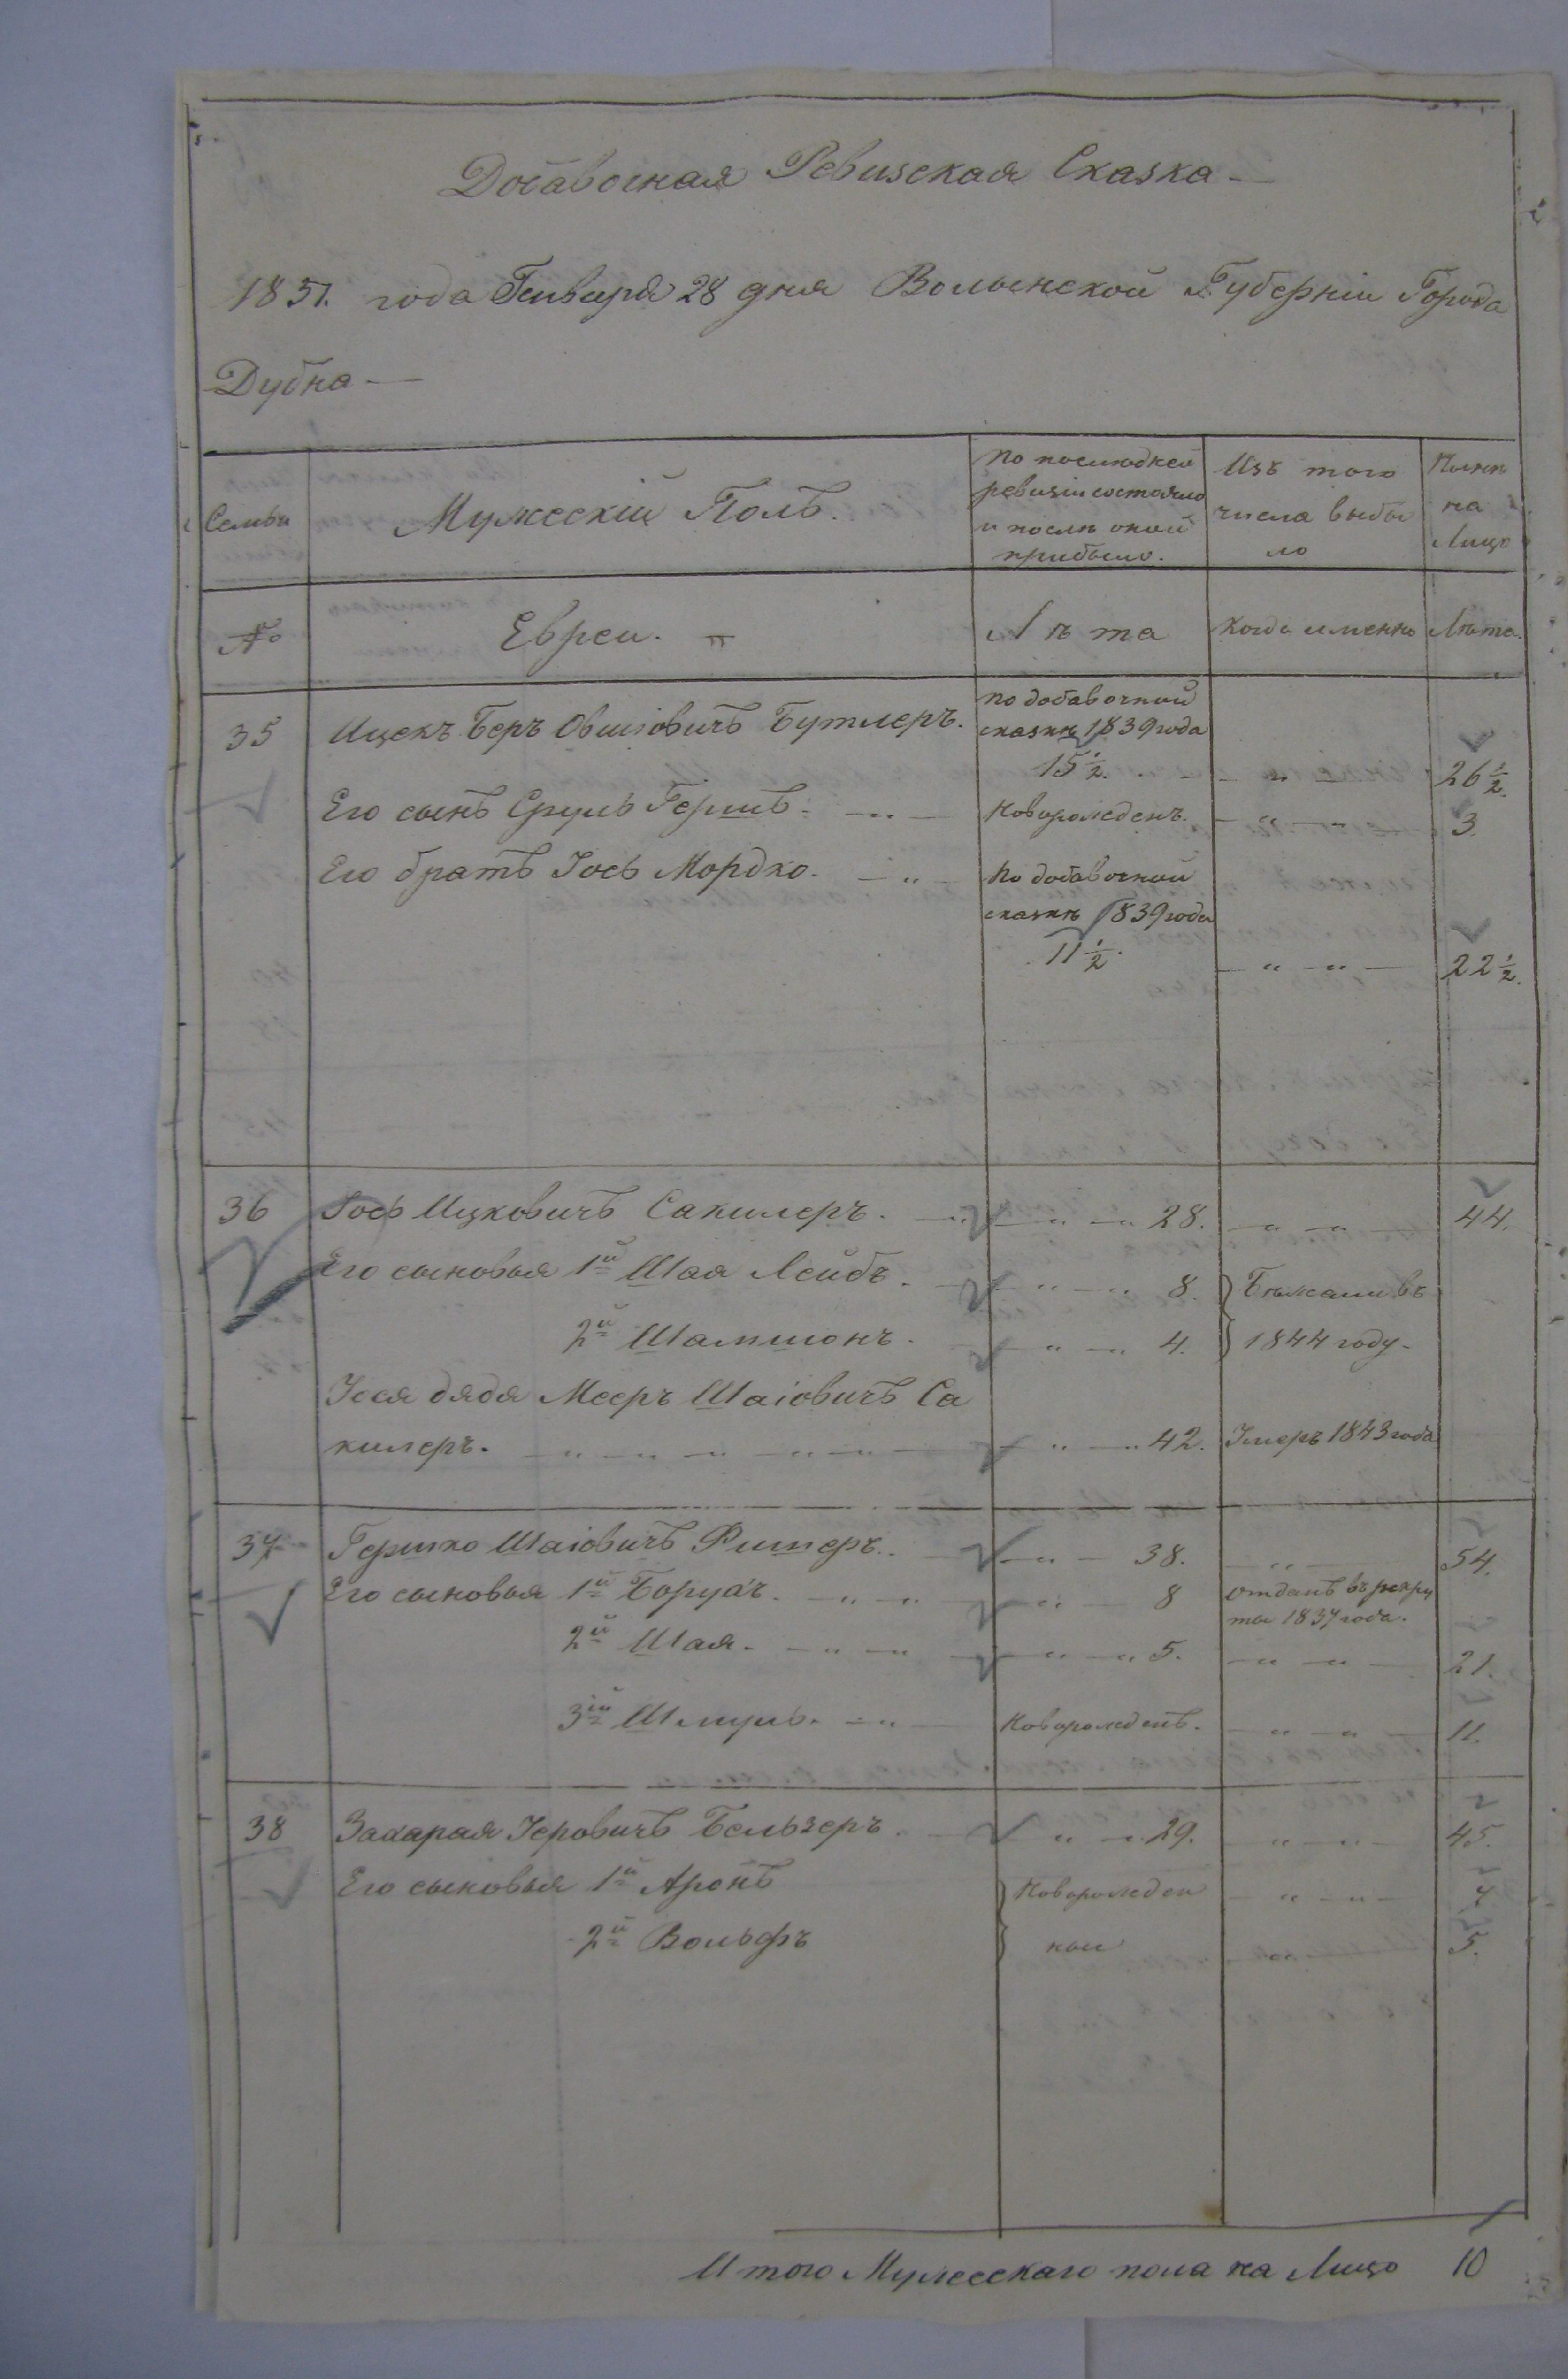 Добавочная Ревизская Сказка
1851. года Генваря 28 дня Волынской Губерніи Города
Дубна
Семьи
Мужескій Полъ.
По последней ревизіи состояло и после оной прибыло.
Изъ того числа выбыло
Ныне на Лицо
№
Евреи.
Лѣта
Когда именно
Лѣта.
35 Ицекъ Беръ Овшіовичъ Бутлеръ. По добавочной
сказкѣ 1839 года
15 1/2. 26 1/2.
Его сынъ Сруль Гершъ. Новорожденъ. 3.
Его братъ Іось Мордко. По добавочной
сказкѣ 1839 года
11 1/2. 22 1/2.
36 Іось Ицковичъ Сакилеръ. 28. 44.
Его сыновья 1й Шая Лейбъ. 8. } Бежали въ
2й Шамшонъ. 4. } 1844 году.
Іося дядя Мееръ Шаіовичъ Са
килеръ. 42. Умеръ 1843 года
37 Гершко Шаіовичъ Ритеръ. 38. 54.
Его сыновья 1й Борухъ. 8 Отданъ въ рекру
ты 1837 года.
2й Шая. 5. 21.
3ій Шмуль. Новорожденъ. 11.
38 Захарая Іеровичъ Бельзеръ. 29. 45.
Его сыновья 1й Аронъ } Новорожден 7
2й Вольфъ } ные 5.
Итого Мужескаго пола на Лицо 10